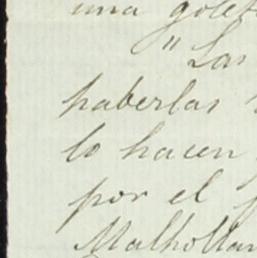 una golet
" Las
haberlas
lo hacen
por el
Malhollan